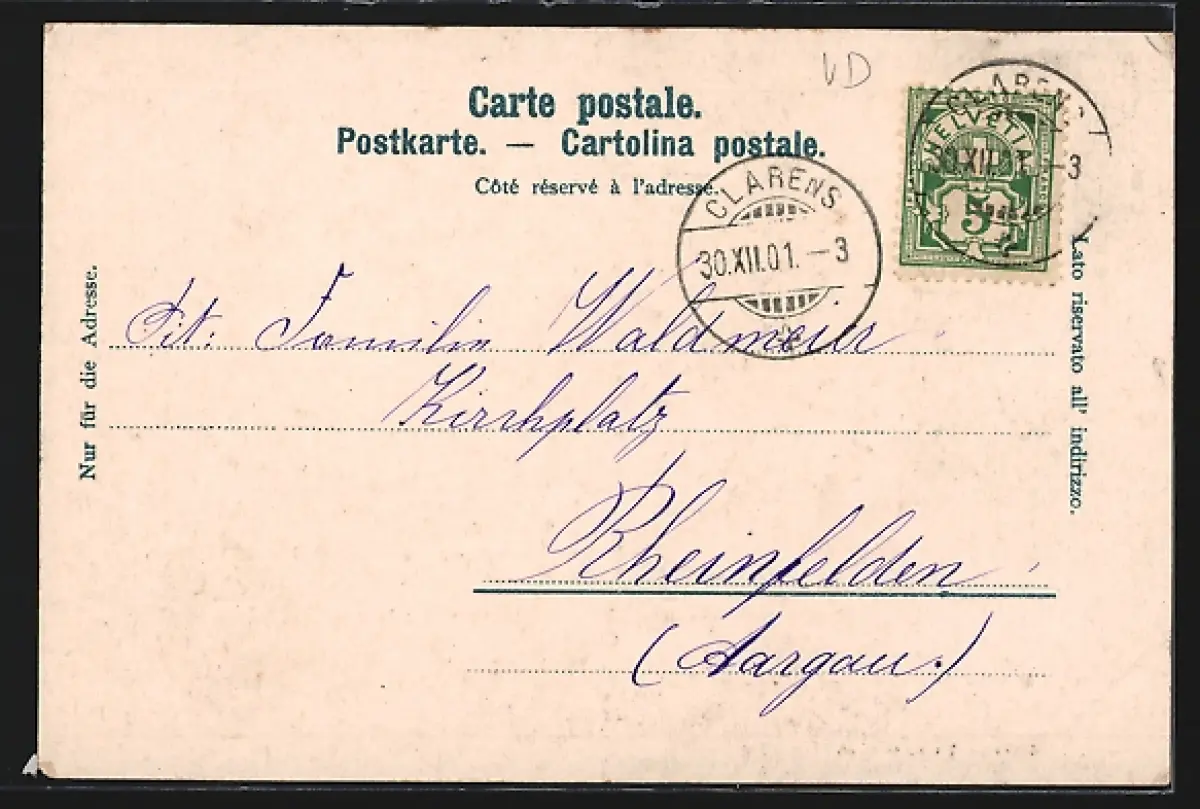 VD
Carte postale.
Postkarte. — Cartolina postale.
Côté réservé à l'adresse.
HELVETIA
5
CLARENS
30.XII.01. — 3
CLARENS
30.XII.01. — 3
Nur für die Adresse.
Lato riservato all' indirizzo.
Tit. Familie Waldmeier
Kirchplatz
Rheinfelden
(Aargau.)